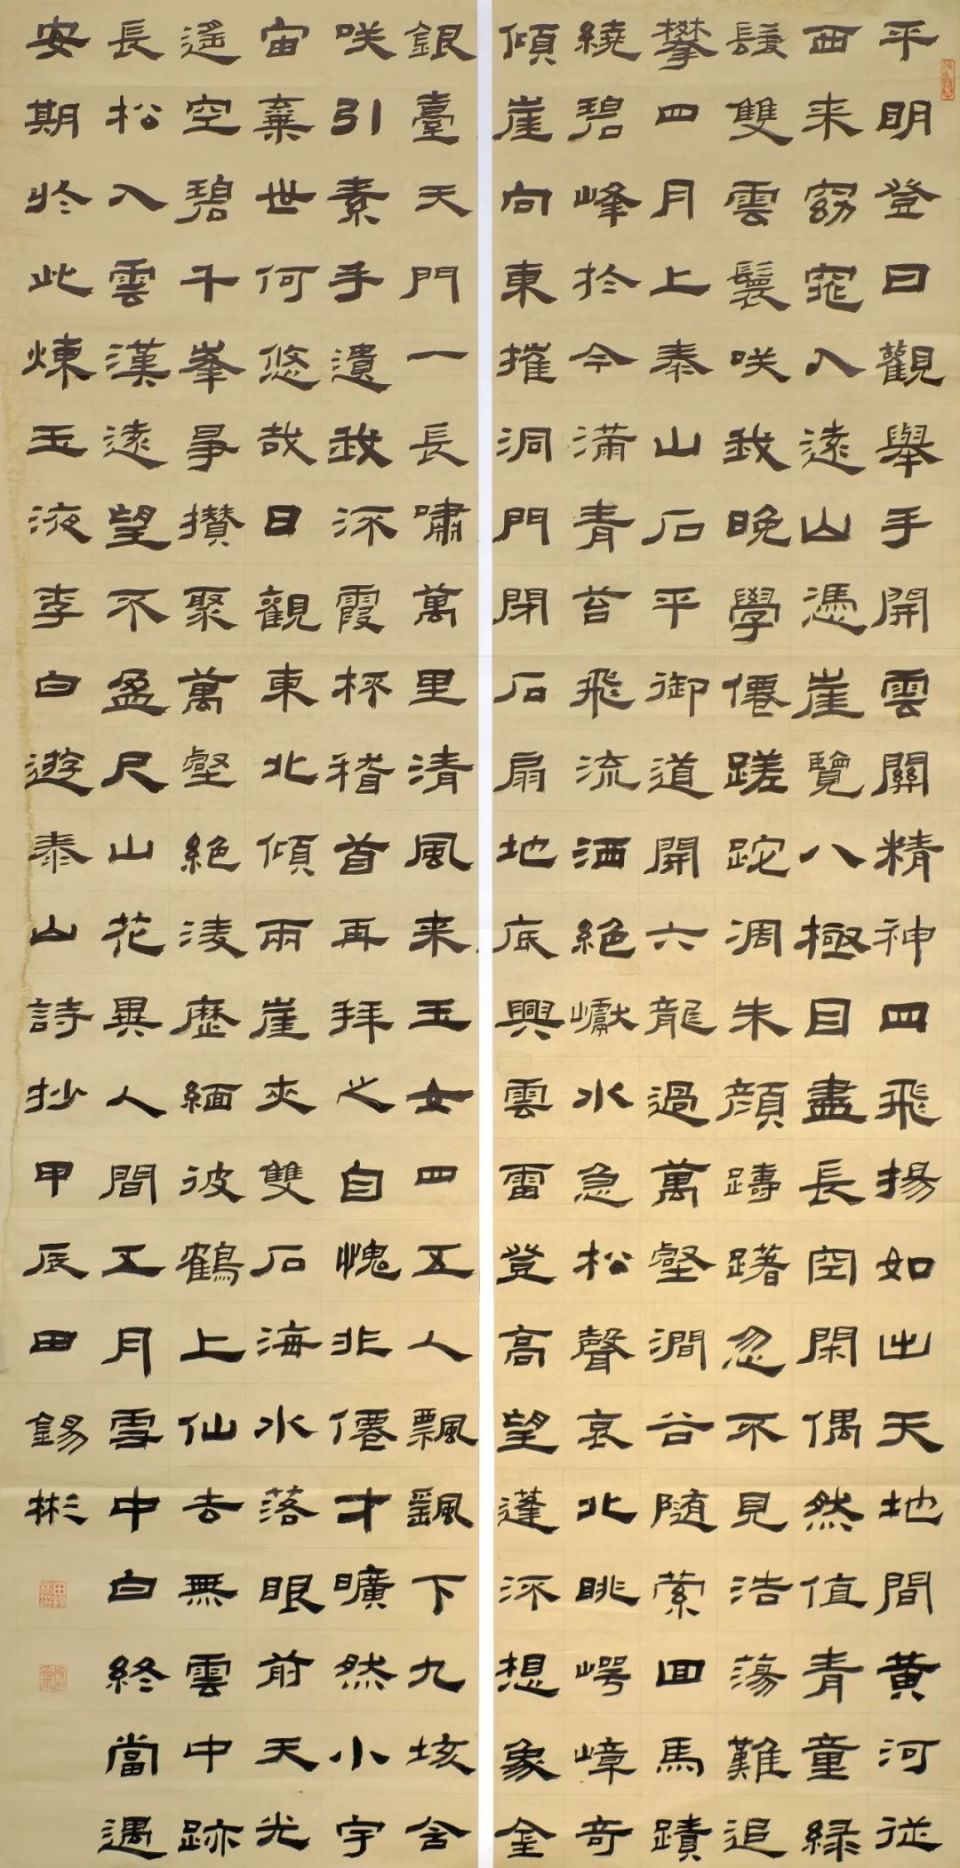 平明登日觀舉手開雲關精神四飛揚如出天地間黃河従
西来窈窕入遠山憑崖覽八極目盡長空閑偶然值青童緑
髮雙雲鬟咲我晚學僊蹉跎凋朱顏躊躇忽不見浩蕩難追
攀四月上泰山石平御道開六龍過萬壑澗谷随縈回馬蹟
繞碧峰於今滿青苔飛流洒絕巘水急松聲哀北眺崿嶂奇
傾崖向東摧洞門閉石扇地底興雲雷登高望蓬想象金
銀臺天門一長嘯萬里清風来玉女四五人飄颻下九垓含
咲引素手遺我流霞杯稽首再拜之自愧非僊才曠然小宇
宙棄世何悠哉日觀東北傾兩崖夾雙石海水落眼前天光
遙空碧千峯爭攢聚萬壑絕淩歷緬彼鶴上仙去無雲中跡
長松入雲漢遠望不盈尺山花異人間五月雪中白終當遇
安期於此煉玉液李白遊泰山詩抄甲辰田錫彬